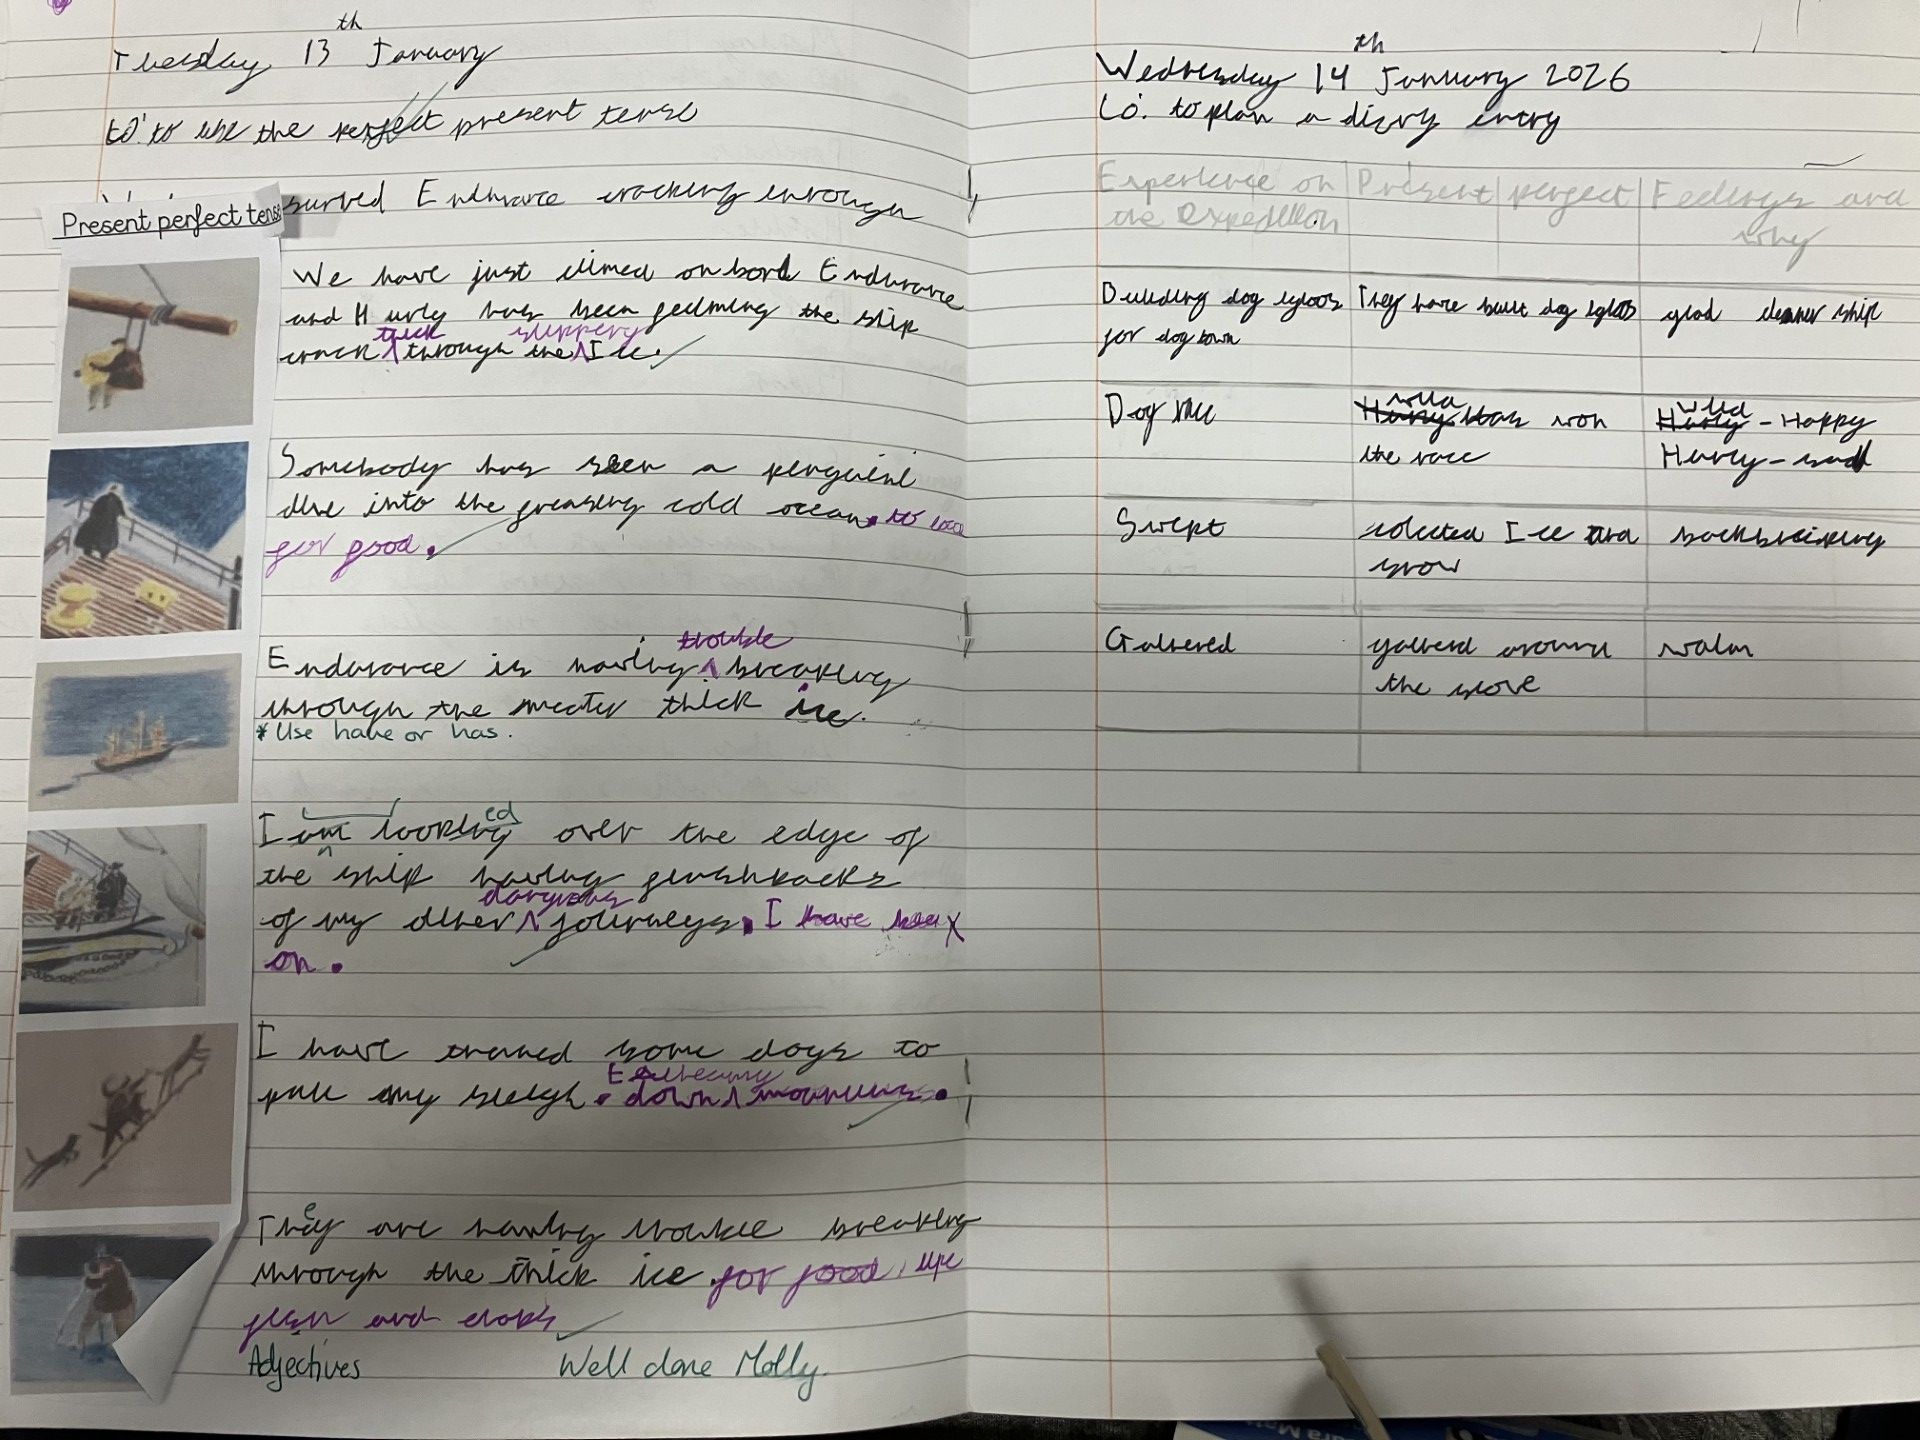 Tuesday 13th January
LO: to use the perfect present tense
Present perfect tense
Endurance cracking through
We have just climed on bord Endurance
and Hurly has been filming the ship
thick slippery
crack through the Ice.
Somebody has seen a penguin
dive into the freasing cold ocean. to look
for food.
trouble
Endurance is having breaking
through the thick ice.
*Use have or has.
ed
I am looking over the edge of
the ship having flashbacks
dangrous
of my other journeys. I have been
on.
I have traned some dogs to
pull my sleigh. down mountins.
e
They are having trouble breaking
through the thick ice for food, like
fish and
Adjectives Well done Molly.
Wednesday 14th January 2026
LO: to plan a diary entry
Experience on the expedition Present perfect Feelings and why
Building dog igloos for dog town They have built dog igloos glad cleaner ship
Dog race Wild Hurly has won the race Wild Hurly - Happy
Hurly - sad
Swept colected Ice and snow backbreaking
Gathered gatherd around the stove warm